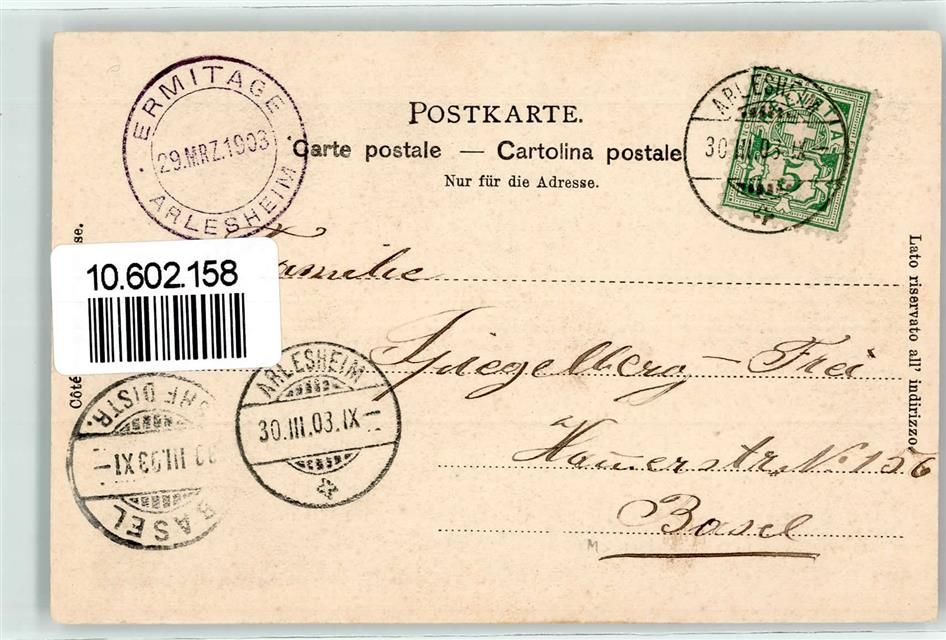 ERMITAGE
29.MRZ.1903
ARLESHEIM
POSTKARTE.
Carte postale — Cartolina postale
Nur für die Adresse.
ARLESHEIM
30.III.03.IX
HELVETIA
5
Familie
Spiegelberg - Frei
str. No 156
Basel
10.602.158
Côté
se.
Lato riservato all' indirizzo.
ARLESHEIM
30.III.03.IX-
BRF. DISTR.
III.03 XI-
BASEL
M